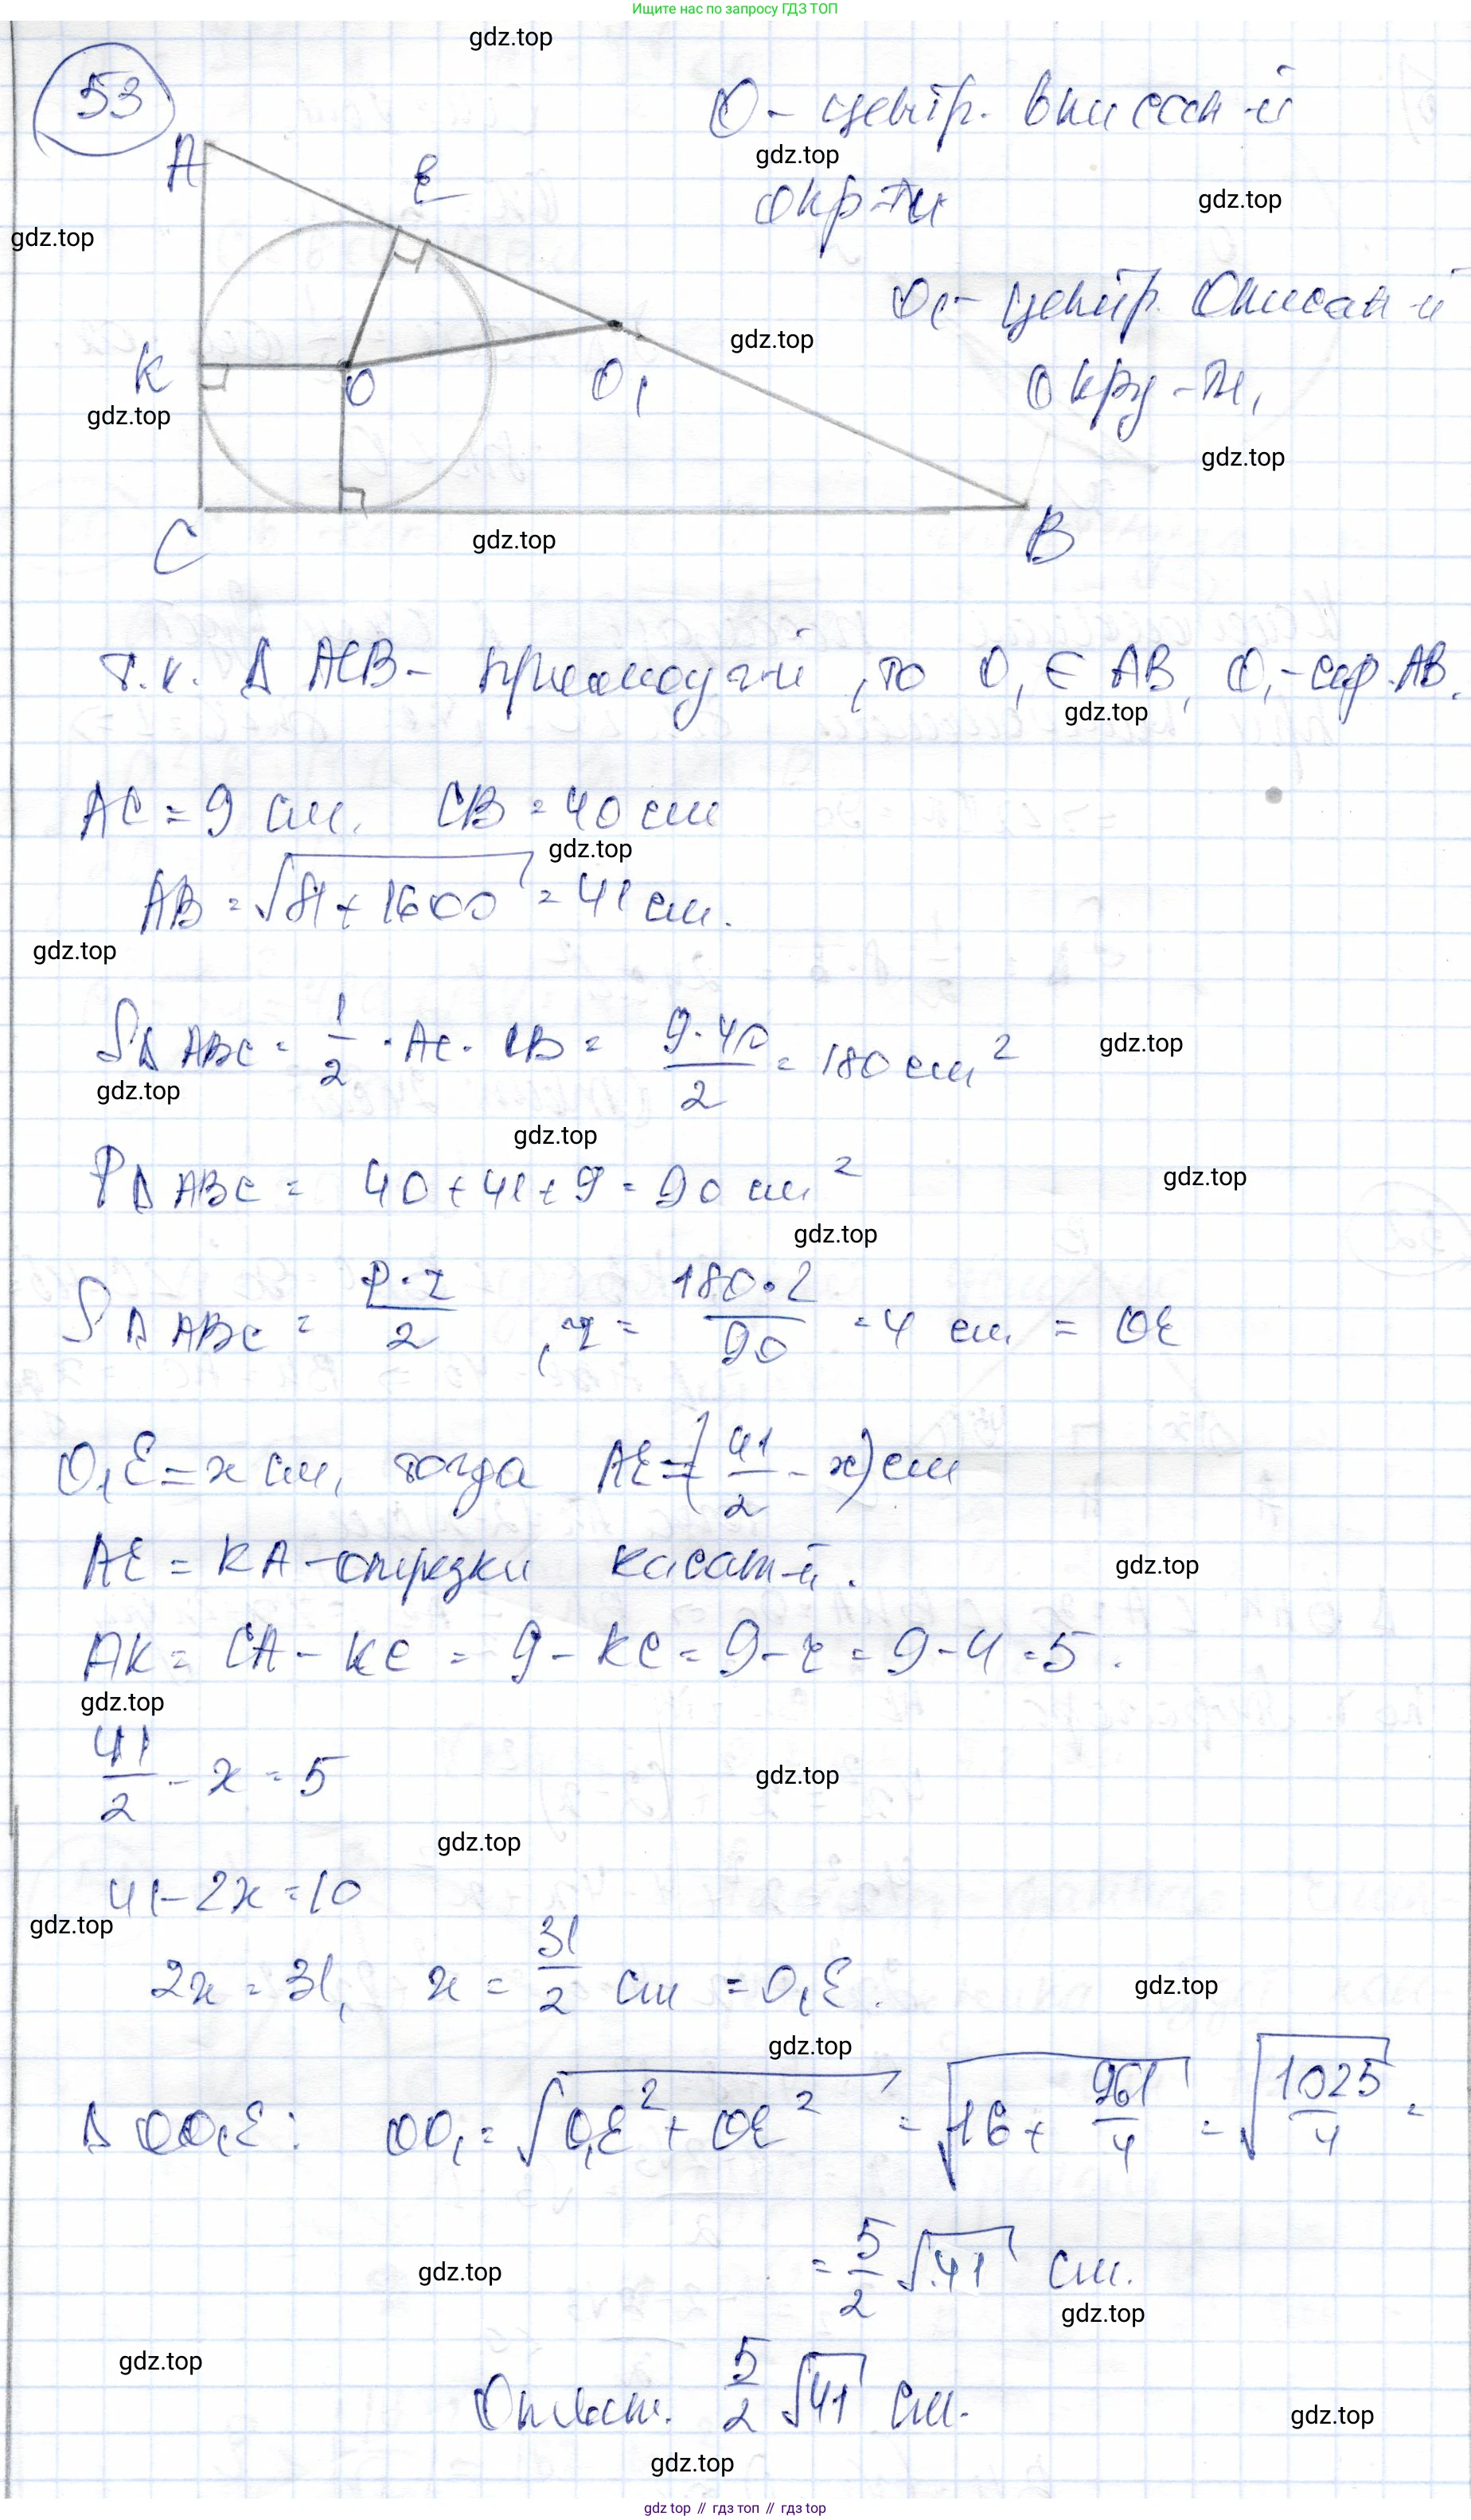 Ищите нас по запросу ГДЗ ТОП
gdz.top
53
O - центр. вписан-й
gdz.top
окр-ти
gdz.top
A
E
gdz.top
O₁ - центр. описан-й
gdz.top
окру-ти,
K
O
O₁
gdz.top
gdz.top
C
gdz.top
B
т.к. Δ ACB - прямоуг-й, то O₁ ∈ AB, O₁ - сер. AB.
gdz.top
AC = 9 см, CB = 40 см
gdz.top
AB = √(81 + 1600) = 41 см.
gdz.top
SΔ ABC = 1/2 · AC · CB = 9·40/2 = 180 см²
gdz.top
gdz.top
gdz.top
PΔ ABC = 40 + 41 + 9 = 90 см²
gdz.top
gdz.top
SΔ ABC = P·r/2, r = 180·2/90 = 4 см = OE
O₁E = x см, тогда AE = (41/2 - x) см
AE = KA - отрезки касат-й.
gdz.top
AK = CA - KC = 9 - KC = 9 - r = 9 - 4 = 5.
gdz.top
41/2 - x = 5
gdz.top
gdz.top
41 - 2x = 10
gdz.top
2x = 31, x = 31/2 см = O₁E.
gdz.top
gdz.top
Δ OO₁E: OO₁ = √(O₁E² + OE²) = √(16 + 961/4) = √(1025/4) =
= 5/2 √41 см.
gdz.top
gdz.top
gdz.top
Ответ. 5/2 √41 см.
gdz.top
gdz.top
gdz top // гдз топ // гдз top